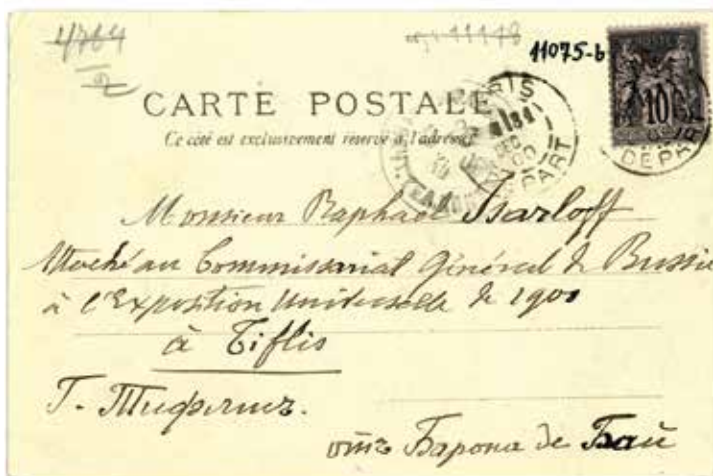 4764
2
11118
11075-b
10
CARTE POSTALE
Ce côté est exclusivement réservé à l'adresse
PARIS
31
DEC
00
DEPART
DEPART
Monsieur Raphael Isarloff
Attaché au Commissariat Général de Russie
à l'Exposition Universelle de 1900
à Tiflis
Г. Тифлисъ.
отъ Барона де Бай